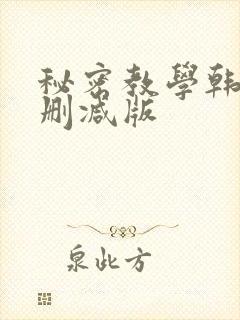 秘密教學韩
删减版
泉此方